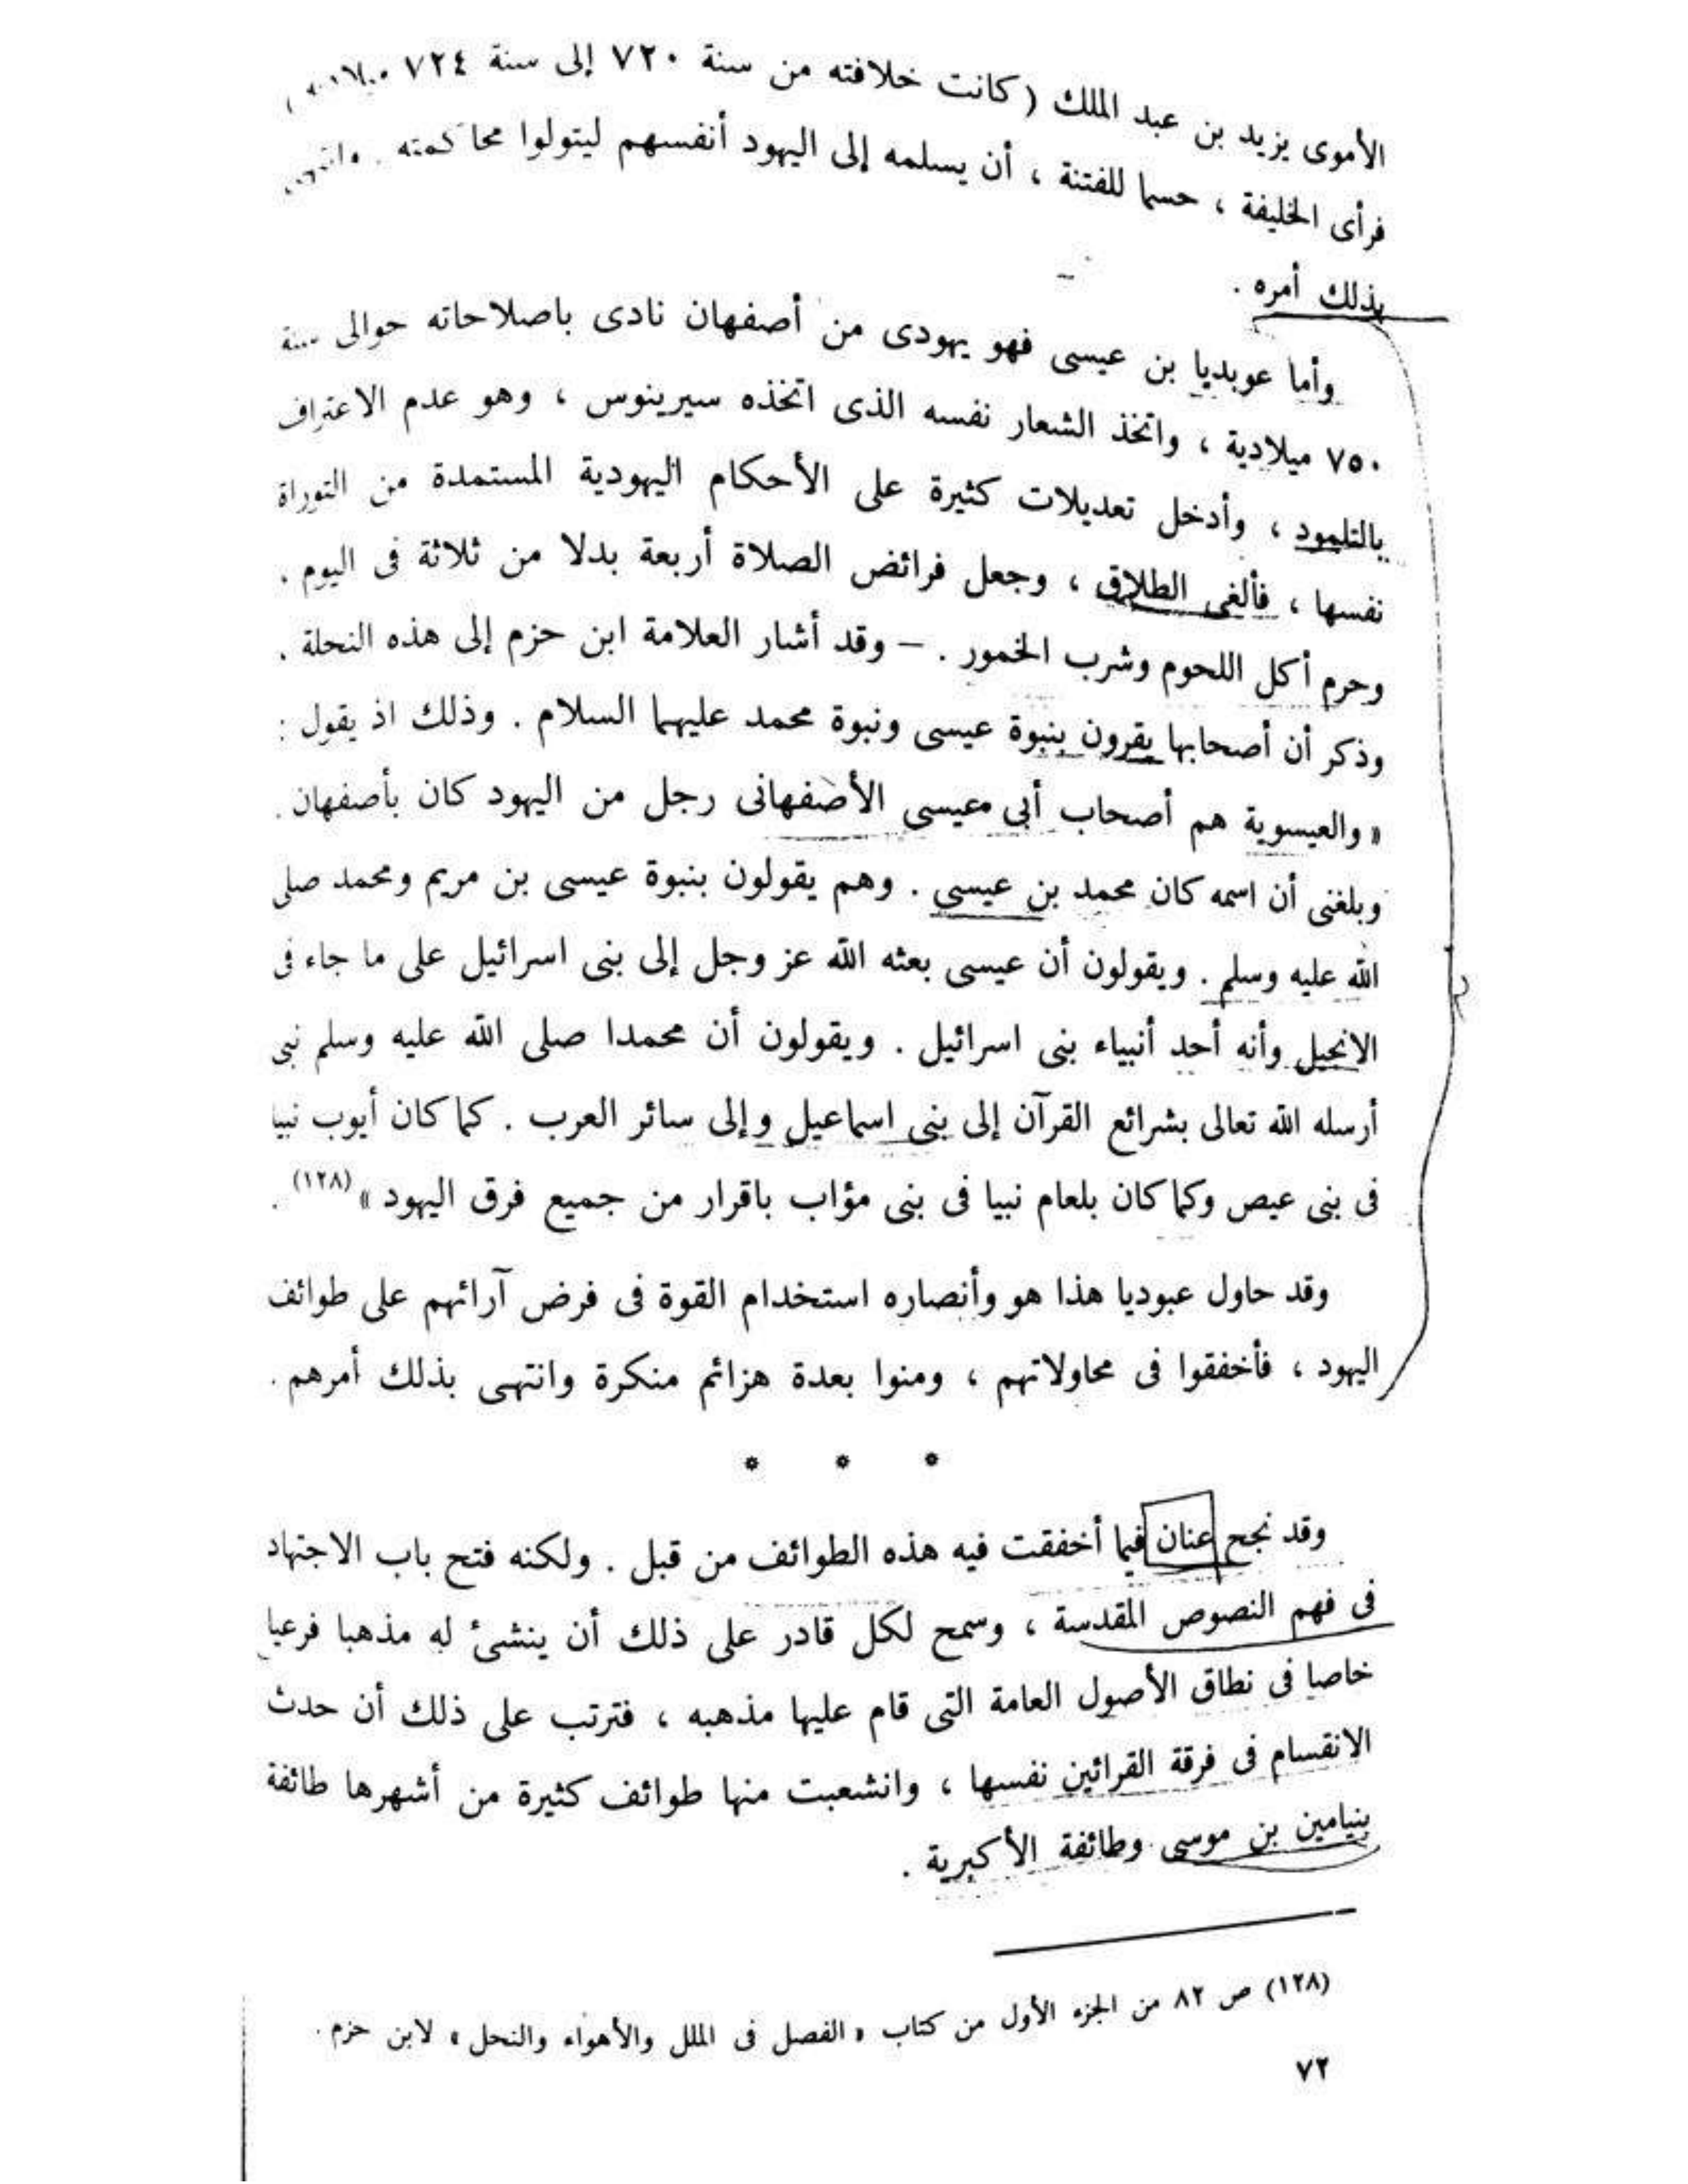 الأموى يزيد بن عبد الملك (كانت خلافته من سنة ٧٢٠ إلى سنة ٧٢٤
فرأى الخليفة ، حسما للفتنة ، أن يسلمه إلى اليهود أنفسهم ليتولوا محاكمته .
بذلك أمره .
وأما عوبديا بن عيسى فهو يهودى من أصفهان نادى باصلاحاته حوالى سنة
٧٥٠ ميلادية ، واتخذ الشعار نفسه الذى اتخذه سيرينوس ، وهو عدم الاعتراف
بالتلمود ، وأدخل تعديلات كثيرة على الأحكام اليهودية المستمدة من التوراة
نفسها ، فألغى الطلاق ، وجعل فرائض الصلاة أربعة بدلا من ثلاثة فى اليوم .
وحرم أكل اللحوم وشرب الخمور . – وقد أشار العلامة ابن حزم إلى هذه النحلة .
وذكر أن أصحابها يقرون بنبوة عيسى ونبوة محمد عليهما السلام . وذلك اذ يقول :
« والعيسوية هم أصحاب أبى عيسى الأصفهانى رجل من اليهود كان بأصفهان .
وبلغنى أن اسمه كان محمد بن عيسى . وهم يقولون بنبوة عيسى بن مريم ومحمد صلى
الله عليه وسلم . ويقولون أن عيسى بعثه الله عز وجل إلى بنى اسرائيل على ما جاء فى
الانجيل وأنه أحد أنبياء بنى اسرائيل . ويقولون أن محمدا صلى الله عليه وسلم نبى
أرسله الله تعالى بشرائع القرآن إلى بنى اسماعيل وإلى سائر العرب . كما كان أيوب نبيا
فى بنى عيص وكما كان بلعام نبيا فى بنى مؤاب باقرار من جميع فرق اليهود » (١٢٨) .
وقد حاول عبوديا هذا هو وأنصاره استخدام القوة فى فرض آرائهم على طوائف
اليهود ، فأخفقوا فى محاولاتهم ، ومنوا بعدة هزائم منكرة وانتهى بذلك أمرهم .
* * *
وقد نجح عنان فيما أخفقت فيه هذه الطوائف من قبل . ولكنه فتح باب الاجتهاد
فى فهم النصوص المقدسة ، وسمح لكل قادر على ذلك أن ينشئ له مذهبا فرعيا
خاصا فى نطاق الأصول العامة التى قام عليها مذهبه ، فترتب على ذلك أن حدث
الانقسام فى فرقة القرائين نفسها ، وانشعبت منها طوائف كثيرة من أشهرها طائفة
بنيامين بن موسى وطائفة الأكبرية .
(١٢٨) ص ٨٢ من الجزء الأول من كتاب « الفصل فى الملل والأهواء والنحل » لابن حزم .
٧٢